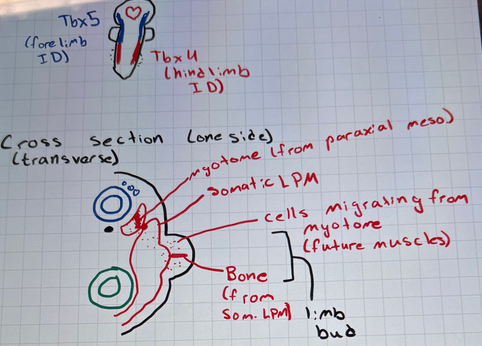 Tbx5
(forelimb
ID)
Tbx4
(hindlimb
ID)
Cross section (one side)
(transverse)
myotome (from paraxial meso)
somatic LPM
cells migrating from
myotome
(future muscles)
Bone
(from
som. LPM)
limb
bud